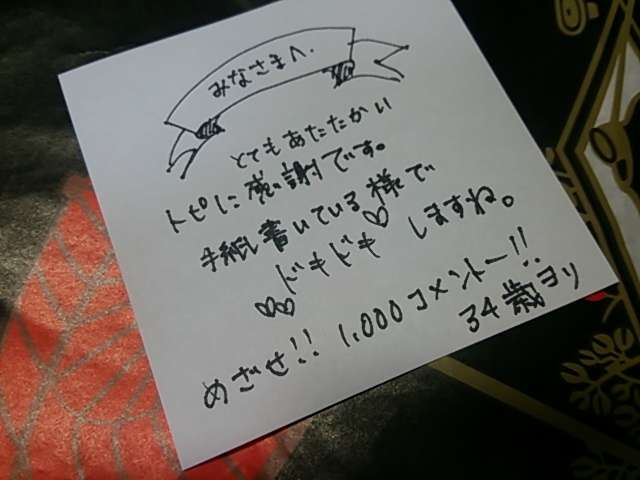 みなさまへ.
とてもあたたかい
トピに感謝です。
手紙書いている様で
ドキドキ しますね。
めざせ!! 1,000コメントー!!
34歳ヨリ